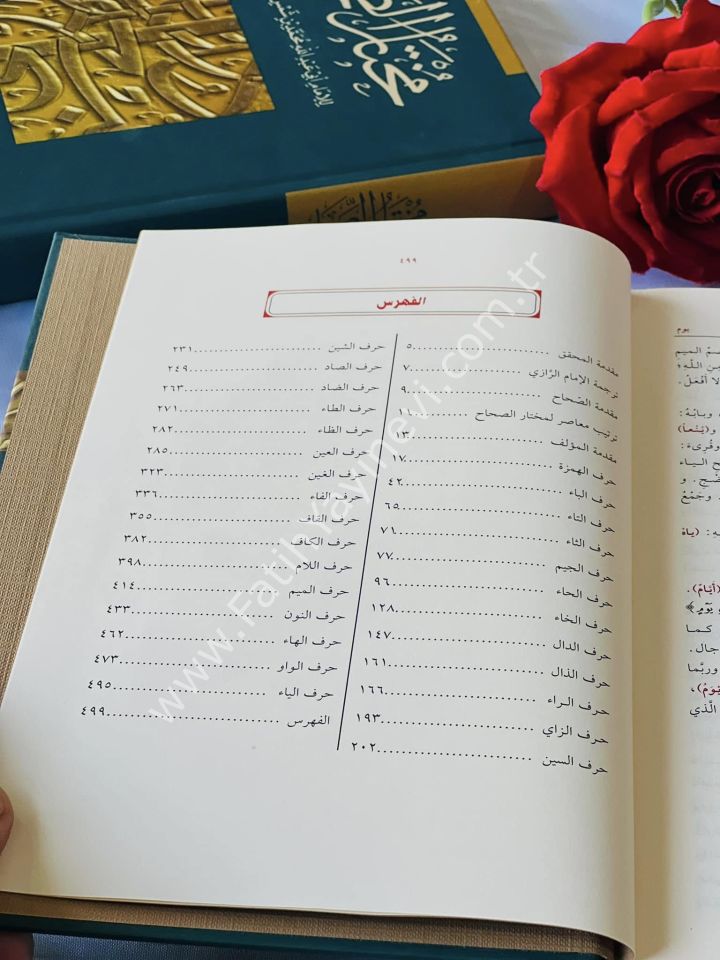 مختار
٤٩٩
الفهرس
مقدمة المحقق ٥
ترجمة الإمام الرَّازي ٧
مقدمة الصّحاح ٩
ترتيب معاصر لمختار الصحاح ١١
مقدمة المؤلف ١٣
حرف الهمزة ١٧
حرف الباء ٤٢
حرف التاء ٦٥
حرف الثاء ٧١
حرف الجيم ٧٧
حرف الحاء ٩٦
حرف الخاء ١٢٨
حرف الدال ١٤٧
حرف الذال ١٦١
حرف الراء ١٦٦
حرف الزاي ١٩٣
حرف السين ٢٠٢
حرف الشين ٢٣١
حرف الصاد ٢٤٩
حرف الضاد ٢٦٣
حرف الطاء ٢٧١
حرف الظاء ٢٨٢
حرف العين ٢٨٥
حرف الغين ٣٢٣
حرف الفاء ٣٣٦
حرف القاف ٣٥٥
حرف الكاف ٣٨٢
حرف اللام ٣٩٨
حرف الميم ٤١٤
حرف النون ٤٣٣
حرف الهاء ٤٦٢
حرف الواو ٤٧٣
حرف الياء ٤٩٥
الفهرس ٤٩٩
يوم
الميم
لا أفعَلُ.
وبابُهُ:
و(يَنْعاً)
وقُرِىءَ:
الياء
وجَمْعُ
(ياهْ
(أَيَّامٌ).
يَوْمٍ﴾
كما
جال.
وربَّما
يَوْمُ)،
الَّذي
www.FatihYayinevi.com.tr